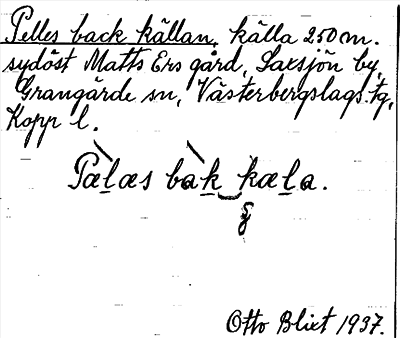 Pelles back källan, källa 250 m.
sydöst Matts Ers gård, Saxsjön by,
Grangärde sn, Västerbergslags tg,
Kopp l.
Pælæs bak kæla.
Otto Blixt 1937.